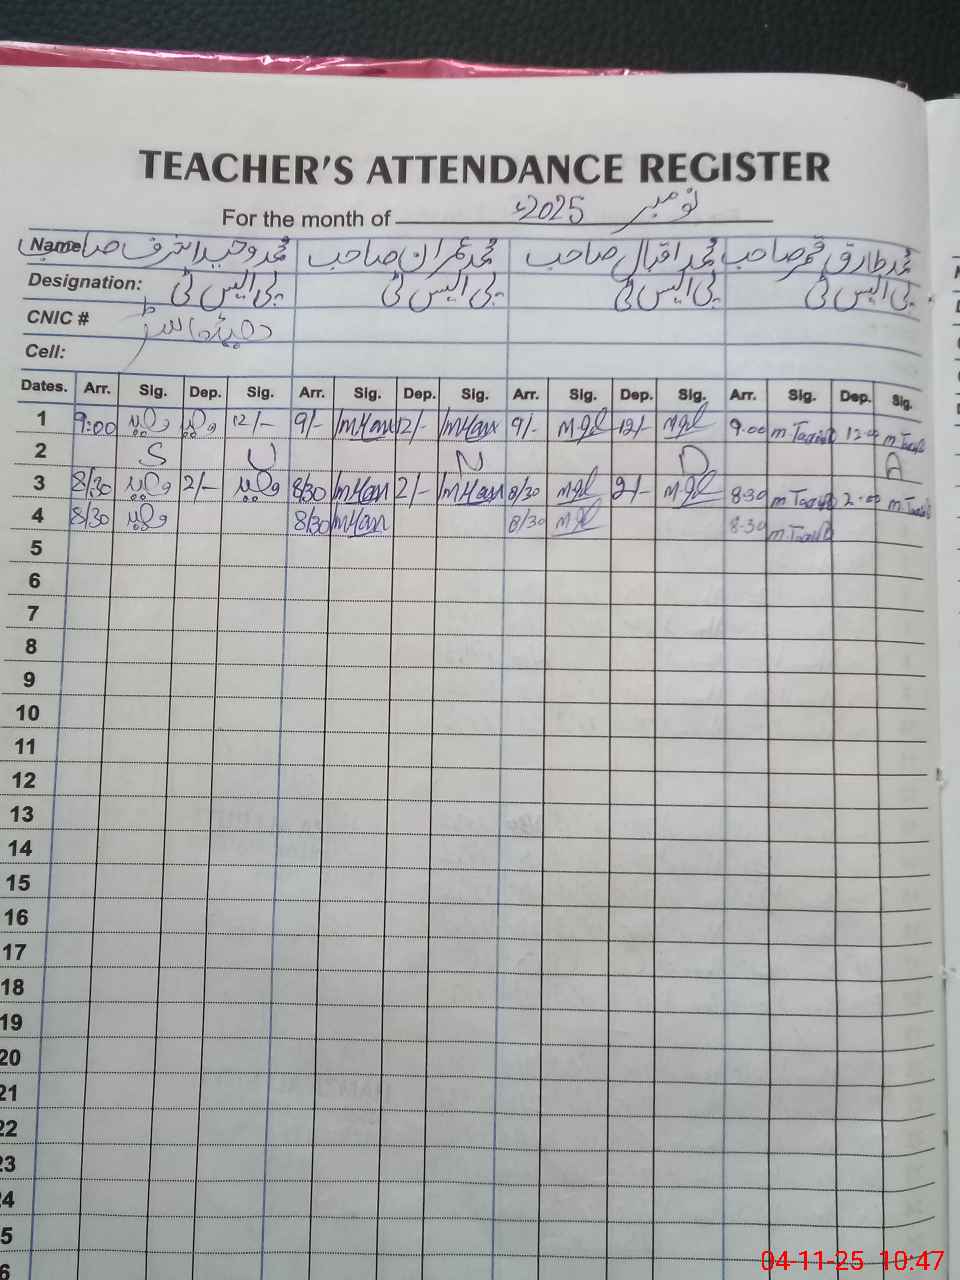 TEACHER'S ATTENDANCE REGISTER
For the month of نومبر 2025ء
Name محمد وحید اشرف صاحب محمد عمران صاحب محمد اقبال صاحب محمد طارق قمر صاحب
Designation: پی ایس ٹی پی ایس ٹی پی ایس ٹی پی ایس ٹی
CNIC # ہیڈ ماسٹر
Cell:
Dates. Arr. Sig. Dep. Sig. Arr. Sig. Dep. Sig. Arr. Sig. Dep. Sig. Arr. Sig. Dep. Sig.
1 9:00 وحید وحید 12/- 9/- 12/- 9/- 12/- 9.00 m.Tariq 12.00 m.Tariq
2 S U N D A
3 8/30 وحید 2/- وحید 8/30 2/- 8/30 2/- 8-30 m.Tariq 2.00 m.Tariq
4 8/30 وحید 8/30 8/30 8-30 m.Tariq
5
6
7
8
9
10
11
12
13
14
15
16
17
18
19
20
21
22
23
24
5
6
04-11-25 10:47